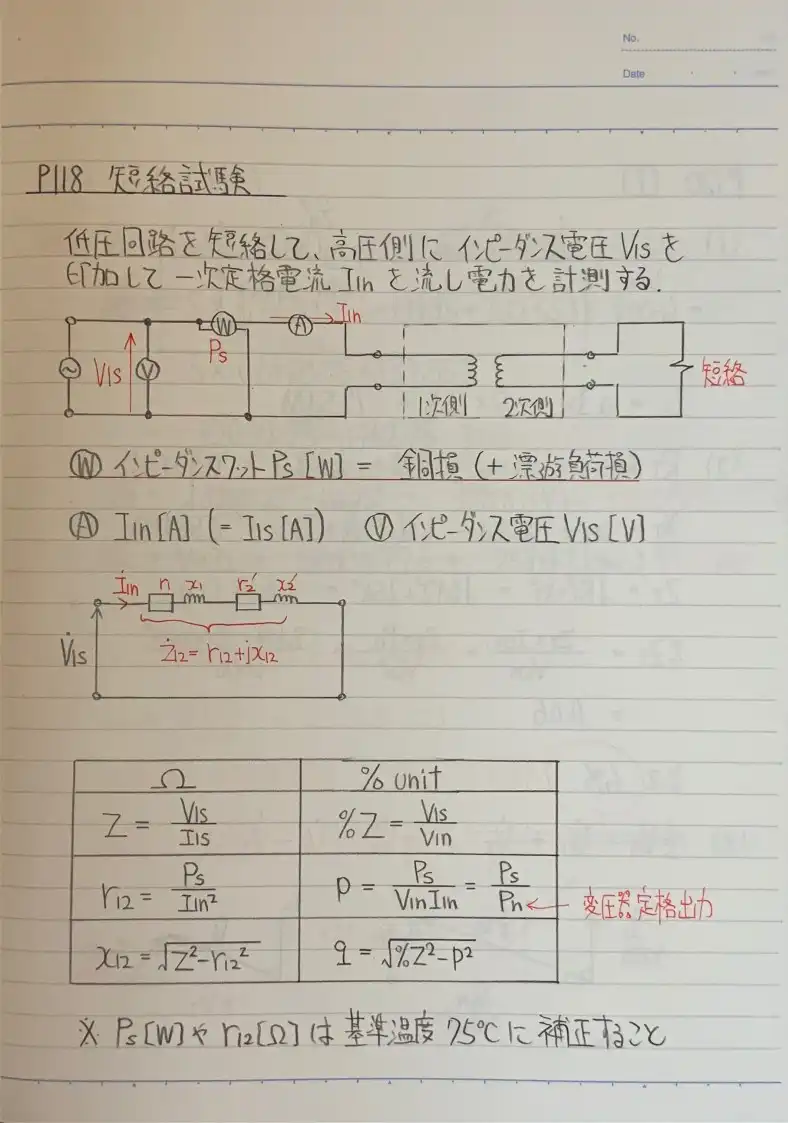 No.
Date
P118 短絡試験
低圧回路を短絡して、高圧側に インピーダンス電圧 V1sを
印加して 一次定格電流 I1n を流し電力を計測する.
I1n
W
A
Ps
V1s
V
短絡
1次側 2次側
Ⓦ インピーダンスワット Ps [W] = 銅損 (+ 漂遊負荷損)
Ⓐ I1n [A] (= I1s [A]) Ⓥ インピーダンス電圧 V1s [V]
İ1n r1 x1 r2' x2'
V̇1s
ż12 = r12 + jx12
Ω % unit
Z = V1s/I1s %Z = V1s/V1n
r12 = Ps/I1n² p = Ps/V1nI1n = Ps/Pn ← 変圧器定格出力
x12 = √Z²-r12² q = √%Z²-p²
※ Ps [W] や r12 [Ω] は 基準温度 75℃に 補正すること